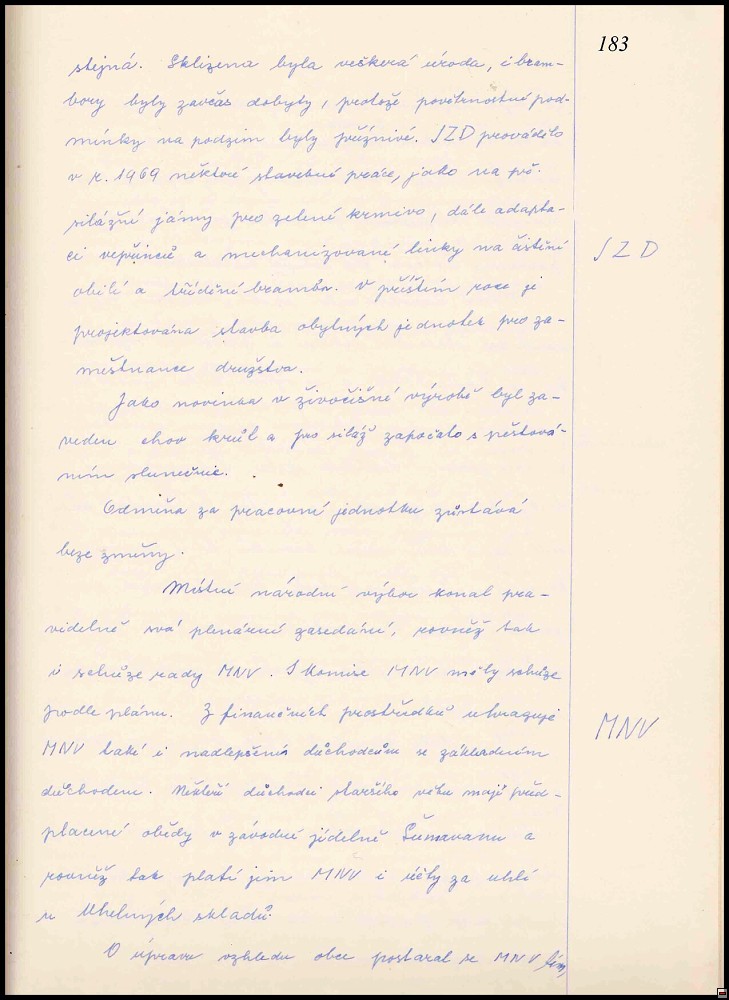 183
stejná. Sklizena byla veškerá úroda, i bram-
bory byly zavčas dobyty, protože povětrnostní pod-
mínky na podzim byly příznivé. JZD provádělo
v r. 1969 některé stavební práce, jako na př.
silážní jámy pro zelené krmivo, dále adapta-
ci vepřínců a mechanizované linky na čištění
JZD
obilí a třídění brambor. V příštím roce je
projektována stavba obytných jednotek pro za-
městnance družstva.
Jako novinka v živočišné výrobě byl za-
veden chov krůt a pro siláž započato s pěstová-
ním slunečnic.
Odměna za pracovní jednotku zůstává
beze změny.
Místní národní výbor konal pra-
videlně svá plenární zasedání, rovněž tak
i schůze rady MNV. I komise MNV měly schůze
podle plánu. Z finančních prostředků uhrazuje
MNV
MNV také i nadlepšení důchodcům se základním
důchodem. Někteří důchodci staršího věku mají před-
placené obědy v závodní jídelně Šumavanu a
rovněž tak platí jim MNV i účty za uhlí
u Uhelných skladů.
O úpravu vzhledu obce postaral se MNV tím,